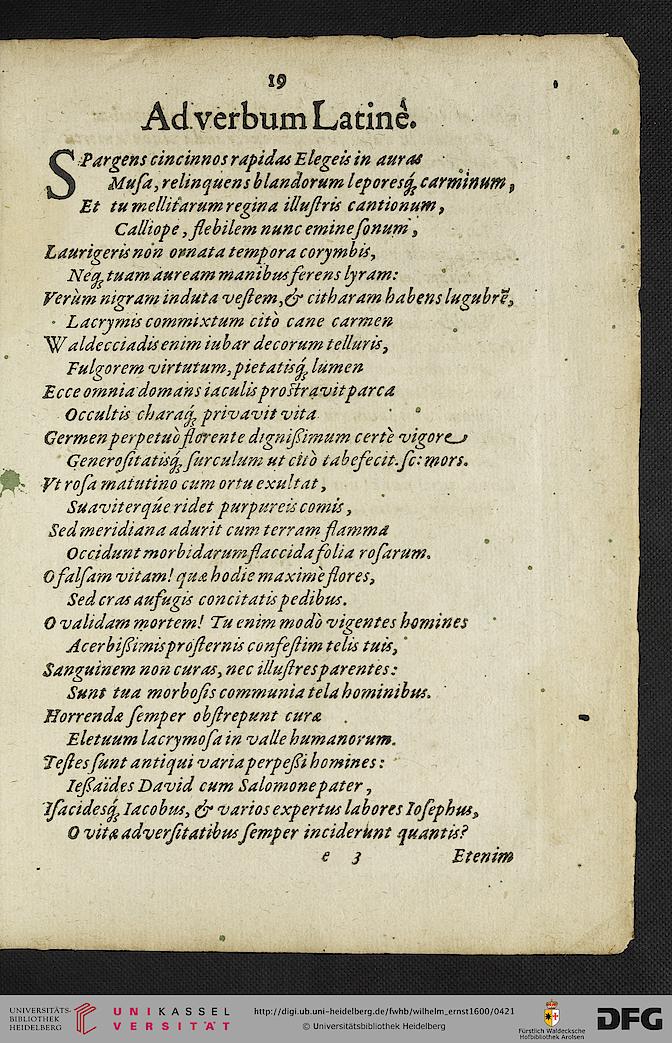 19
Ad verbum Latinè.
SPargens cincinnos rapidas Elegeis in auras
Muſa, relinquens blandorum leporesq́; carminum,
Et tu mellitarum regina illuſtris cantionum,
Calliope, flebilem nunc emine ſonum,
Laurigeris non ornata tempora corymbis,
Neq; tuam auream manibus ferens lyram:
Verùm nigram induta veſtem, & citharam habens lugubrē,
Lacrymis commixtum citò cane carmen
Waldecciadis enim iubar decorum telluris,
Fulgorem virtutum, pietatisq́; lumen
Ecce omnia domans iaculis proſtravit parca
Occultis charaq́; privavit vita
Germen perpetuò florente digniſſimum certè vigore
Generoſitatisq́; ſurculum ut citò tabefecit. ſc: mors.
Vt roſa matutino cum ortu exultat,
Suaviterq́ue ridet purpureis comis,
Sed meridiana adurit cum terram flamma
Occidunt morbidarum flaccida folia roſarum.
O falſam vitam! quæ hodie maximè flores,
Sed cras aufugis concitatis pedibus.
O validam mortem! Tu enim modò vigentes homines
Acerbiſſimis proſternis confeſtim telis tuis,
Sanguinem non curas, nec illuſtres parentes:
Sunt tua morboſis communia tela hominibus.
Horrendæ ſemper obſtrepunt curæ
Eletuum lacrymoſa in valle humanorum.
Teſtes ſunt antiqui varia perpeſſi homines:
Ieſſaïdes David cum Salomone pater,
Iſacidesq́; Iacobus, & varios expertus labores Ioſephus,
O vitæ adverſitatibus ſemper inciderunt quantis?
e 3 Etenim
UNIVERSITÄTS-
BIBLIOTHEK
HEIDELBERG
UNIKASSEL
VERSITÄT
http://digi.ub.uni-heidelberg.de/fwhb/wilhelm_ernst1600/0421
© Universitätsbibliothek Heidelberg
Fürstlich Waldecksche
Hofbibliothek Arolsen
DFG